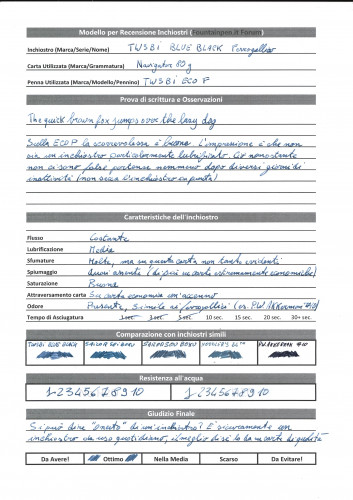 Modello per Recensione Inchiostri (Fountainpen.it Forum)
Inchiostro (Marca/Serie/Nome) TWSBI BLUE BLACK Ferrogallico
Carta Utilizzata (Marca/Grammatura) Navigator 80 g
Penna Utilizzata (Marca/Modello/Pennino) TWSBI ECO F
Prova di scrittura e Osservazioni
The quick brown fox jumps over the lazy dog
Sulla ECO F la scorrevolezza è buona. L'impressione è che non
sia un inchiostro particolarmente lubrificato. Ciò nonostante
non ci sono false partenze nemmeno dopo diversi giorni di
inattività (non secca l'inchiostro in punta)
Caratteristiche dell'inchiostro
Flusso Costante
Lubrificazione Media
Sfumature Molte, ma su questa carta non tanto evidenti
Spiumaggio quasi assente (di più su carta estremamente economica)
Saturazione Buona
Attraversamento carta Su carta economica un'accenno
Odore Presente, simile ai ferrogallici (es. PW AKKerman #10)
Tempo di Asciugatura 1 sec 3 sec 5 sec 10 sec. 15 sec. 20 sec. 30+ sec.
Comparazione con inchiostri simili
TWSBI BLUE BLACK SAILOR SEI-BOKU SAILOR SOU BOKU PW AKKERMAN #10
Resistenza all'acqua
1 2 3 4 5 6 7 8 9 10 1 2 3 4 5 6 7 8 9 10
Giudizio Finale
Si può dire "onesto" di un inchiostro? È sicuramente un
inchiostro da uso quotidiano, il meglio di sé lo dà in carte di qualità
Da Avere! Ottimo Nella Media Scarso Da Evitare!